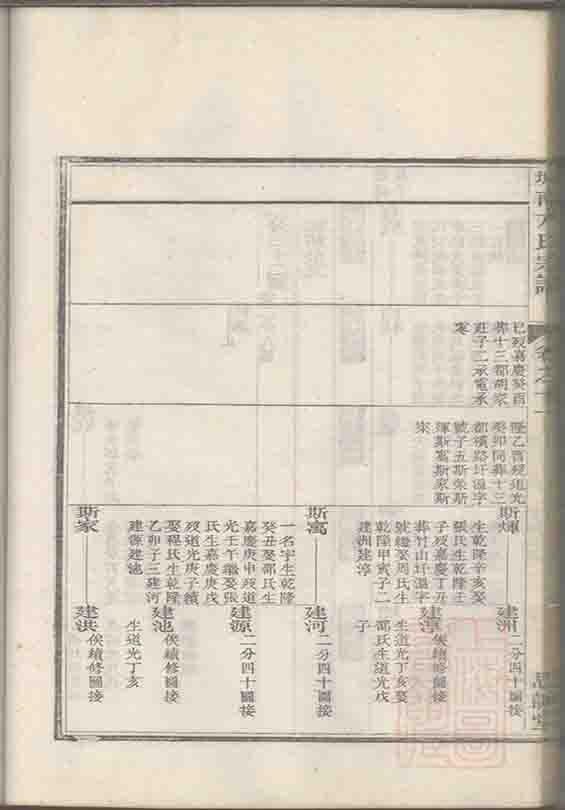 巳歿嘉慶癸酉
葬十三都胡家
莊子二承電承
隆乙酉歿道光
癸卯同葬十三
都橫路圩溫字
號子五斯榮斯
輝斯寓斯家斯
斯輝
生乾隆辛亥娶
張氏生乾隆壬
子歿嘉慶丁丑
葬竹山圩溫字
號繼娶周氏生
乾隆甲寅子二
建洲建淳
建洲
二分四十圖接
建淳
俟續修圖接
生道光丁亥娶
邵氏生道光戊
子
斯寓
一名宇生乾隆
癸丑娶邵氏生
嘉慶庚申歿道
光壬午繼娶張
氏生嘉慶庚戌
歿道光庚子續
娶程氏生乾隆
乙卯子三建河
建源建池
建河
二分四十圖接
建源
二分四十圖接
建池
俟續修圖接
生道光丁亥
斯家
建洪
俟續修圖接